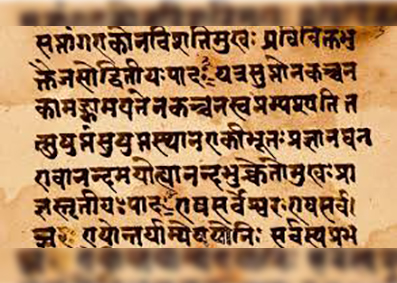 सप्तांगएकोनविंशतिमुखः प्रविविक्तभु
क्तैजसोद्वितीयःपादः यत्रसुप्तोनकच्चन
कामङ्कामयतेनकच्चनस्वप्नम्पश्यति त
त्सुषुप्तंसुषुप्तस्थानएकीभूतः प्रज्ञानघन
एवानन्दमयोह्यानन्दभुक्चेतोमुखः प्रा
ज्ञस्तृतीयः पादः एषसर्वेश्वरः एषसर्व
ज्ञः एषोन्तर्याम्येषयोनिः सर्वस्यप्रभ